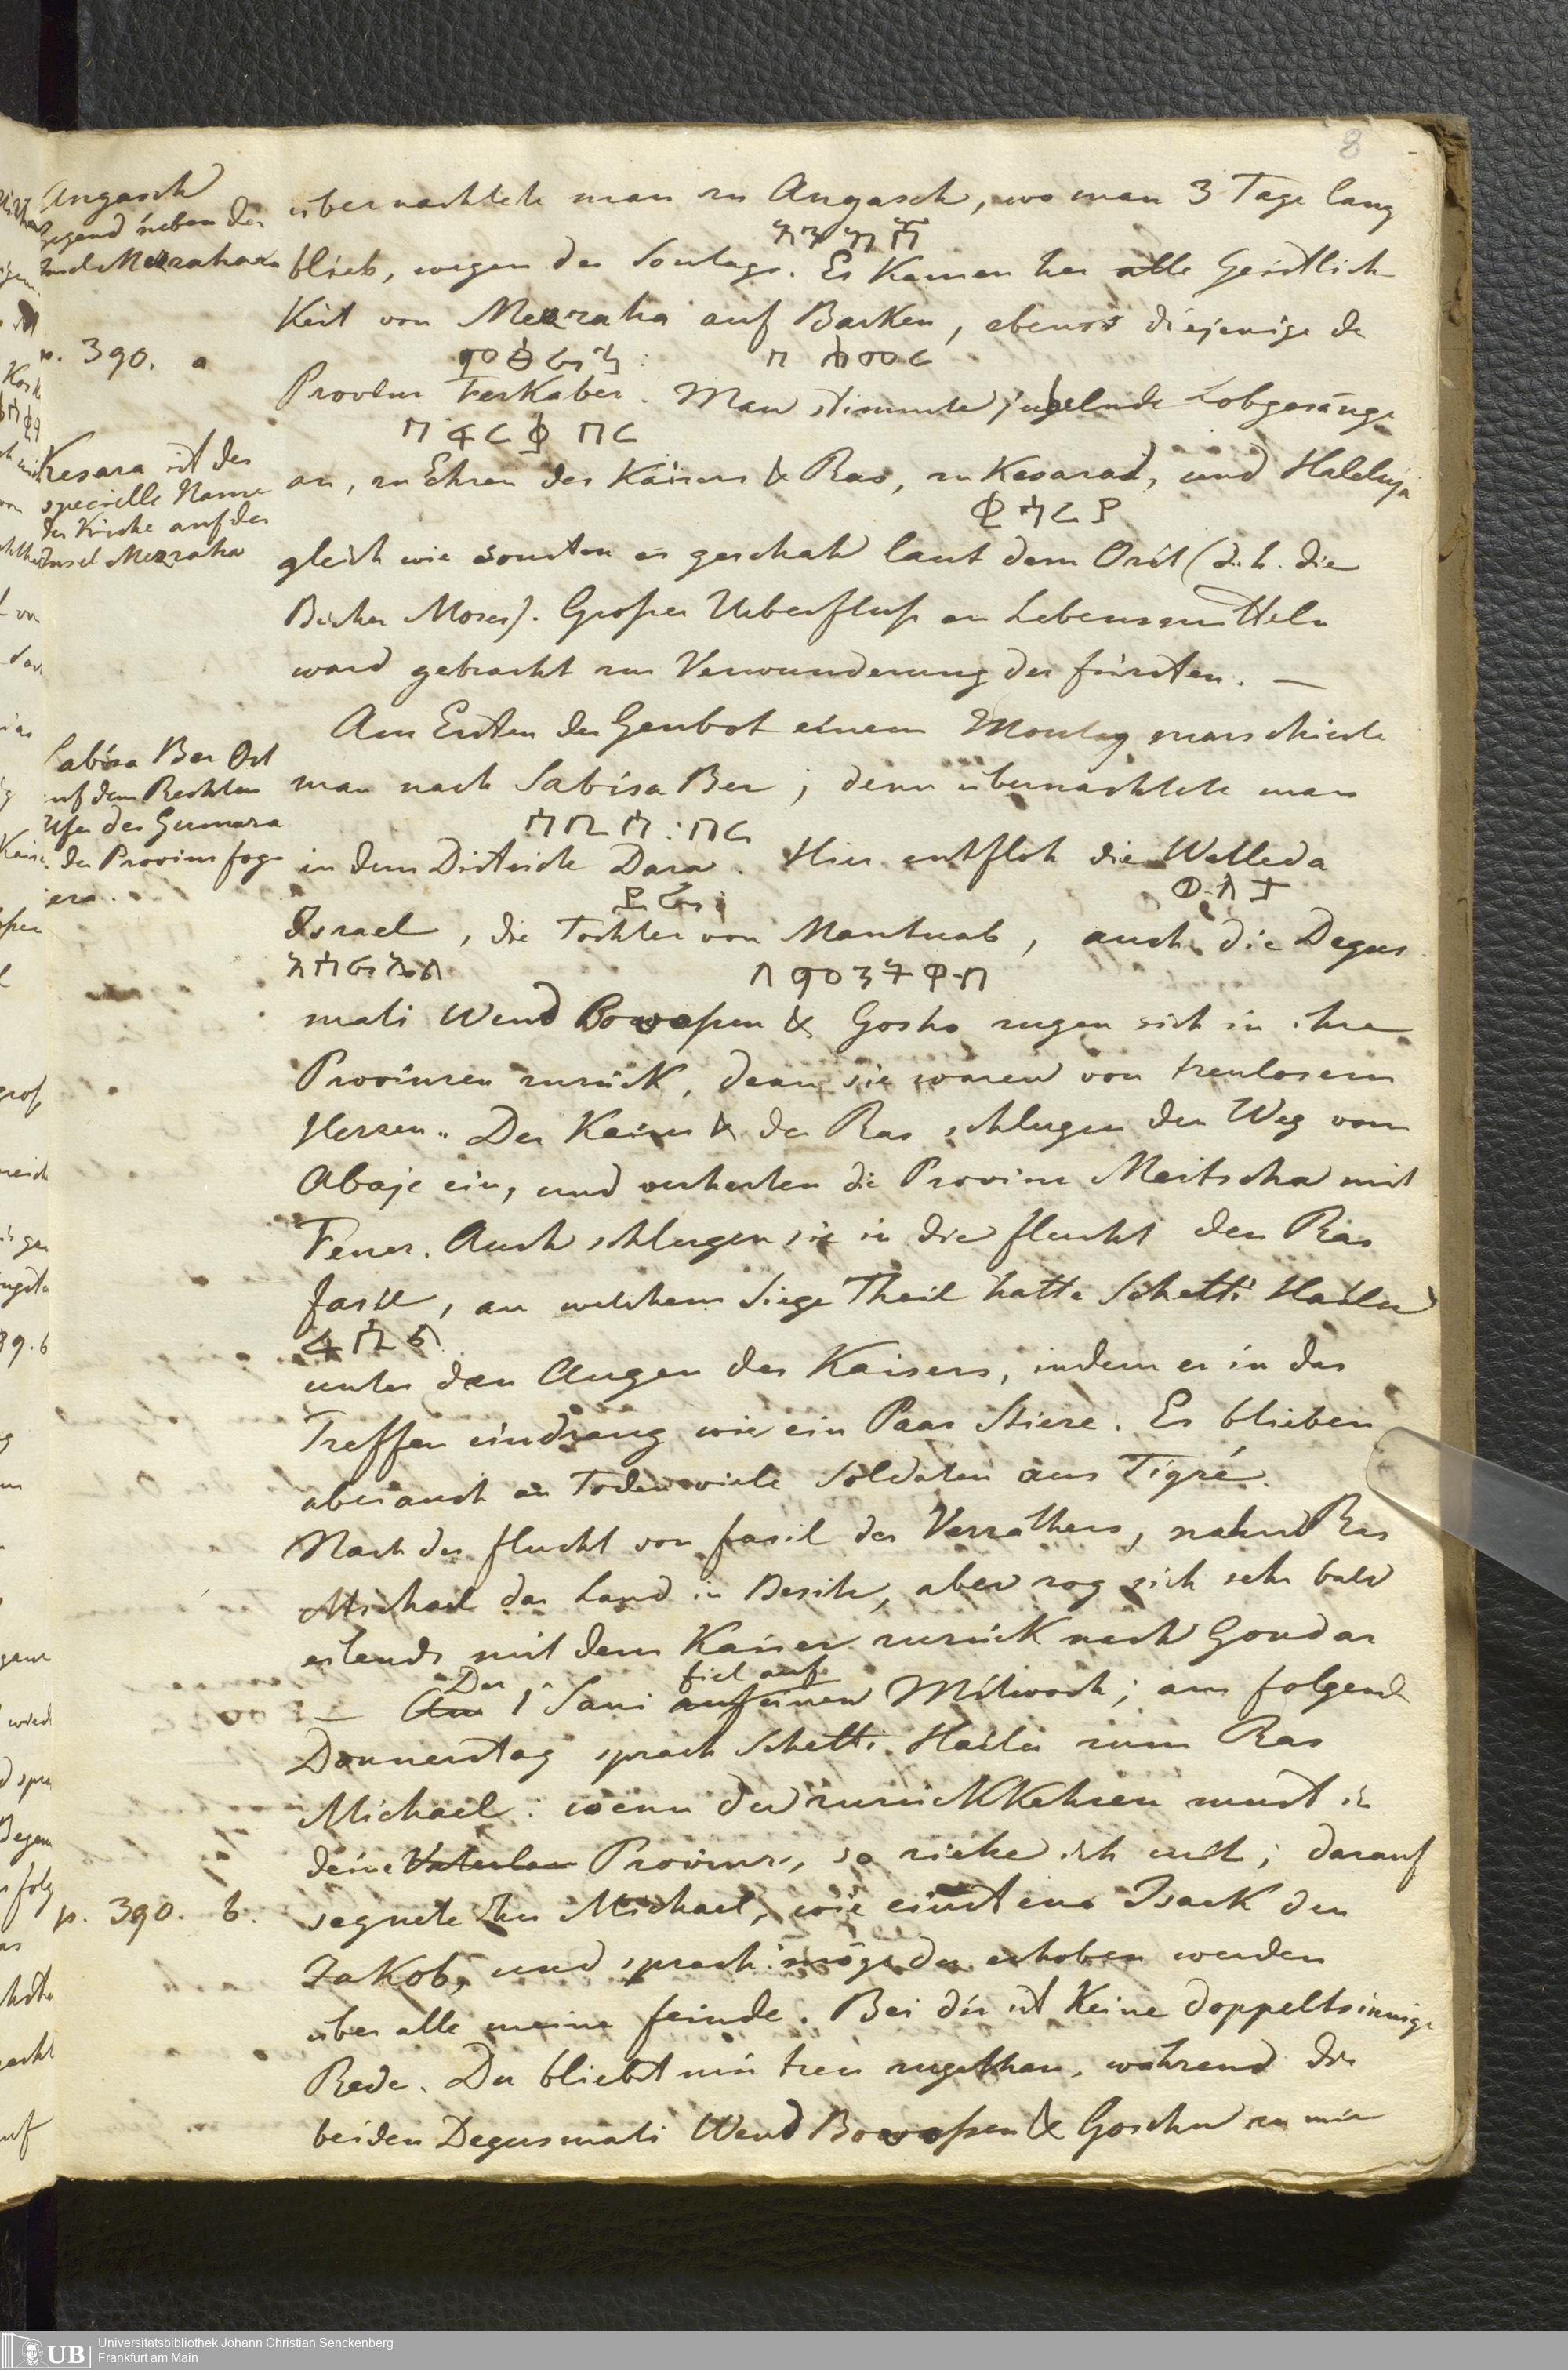 8
übernachtete man zu Angasch, wo man 3 Tage lang
blieb, wegen des Sontags. Es Kamen her alle Geistlich
Keit von Mezraha auf Barken, ebenso diejenige de
Provinz Ferkaber. Man stimmte jubelnde Lobgesänge
ፈርቃ በር
an, zu Ehren des Kaisers & Ras, zu Kesarad, und Haleluja
gleich wie sonsten es geschah laut dem Orit (d.h. die
Bücher Moses). Großer Ueberfluß an Lebensmitteln
ward gebracht zur Verwunderung der fürsten. —
Am Ersten der Genbot einem Montag marschierte
man nach Sabisa Ber; denn übernachtete man
ሳቢሳ : በር
in dem Districte Dara. Hier entfloh die Welleda
ደራ
ወለተ
Israel, die Tochter von Mantuab, auch die Degus
እስራኤል
ለምንትዋብ
mati Wend Bowoßen & Gosho zugen sich in ihre
Provinzen zurück, denn sie waren von treulosem
Herzen. Der Kaiser & der Ras schlugen den Weg vom
Abaje ein, und verherten die Provinz Maitscha mit
Feuer. Auch schlugen sie in die flucht den Ras
fasil, an welchem Siege Theil hatte Schetti Hailu
ፋሲል
unter den Augen des Kaisers, indem er in das
Treffen eindrang wie ein Paar Stiere. Es blieben
aber auch an Toden viele Soldaten aus Tigré.
Nach der flucht von fasil des Verräthers, nahm Ras
Michael das Land in Besitz, aber zog sich sehr bald
eilends mit dem Kaiser zurück nach Gondar
Der fiel auf
— Am 1 Sani auf einen Mitwoch; am folgend
Donnerstag sprach Schetti Hailu zum Ras
Michael: wenn du zurückkehren must in
deine Vaterlan Provinz, so ziehe ich mit; darauf
segnete ihn Michael, wie einstens Isack den
Jakob, und sprach: möges du erhoben werden
über alle meine feinde. Bei dir ist Keine doppeltsinnige
Rede. Du bliebst mir treu zugethan, während die
beiden Degusmati Wend Bowoßen & Goschu zu mir
Angasch
Gegend neben der
Insel Mezraha
p. 390. a
Kesara ist der
specielle Name
der Kirche auf der
Insel Mezraha
Sabisa Ber Ort
auf dem Rechten
Ufer des Gumara
der Provinz fog
era.
p. 390. b.
UB
Universitätsbibliothek Johann Christian Senckenberg
Frankfurt am Main